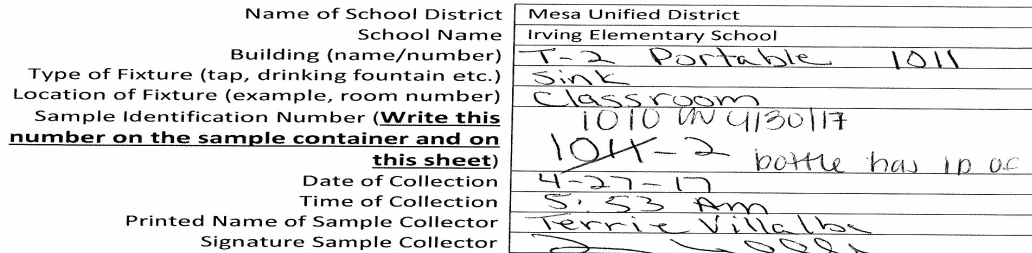 Name of School District Mesa Unified District
School Name Irving Elementary School
Building (name/number) T-2 Portable 1011
Type of Fixture (tap, drinking fountain etc.) Sink
Location of Fixture (example, room number) Classroom
Sample Identification Number (Write this 1010 4/30/17
number on the sample container and on 1011-2 bottle has ID of
this sheet)
Date of Collection 4-27-17
Time of Collection 5:53 Am
Printed Name of Sample Collector Terrie Villalba
Signature Sample Collector